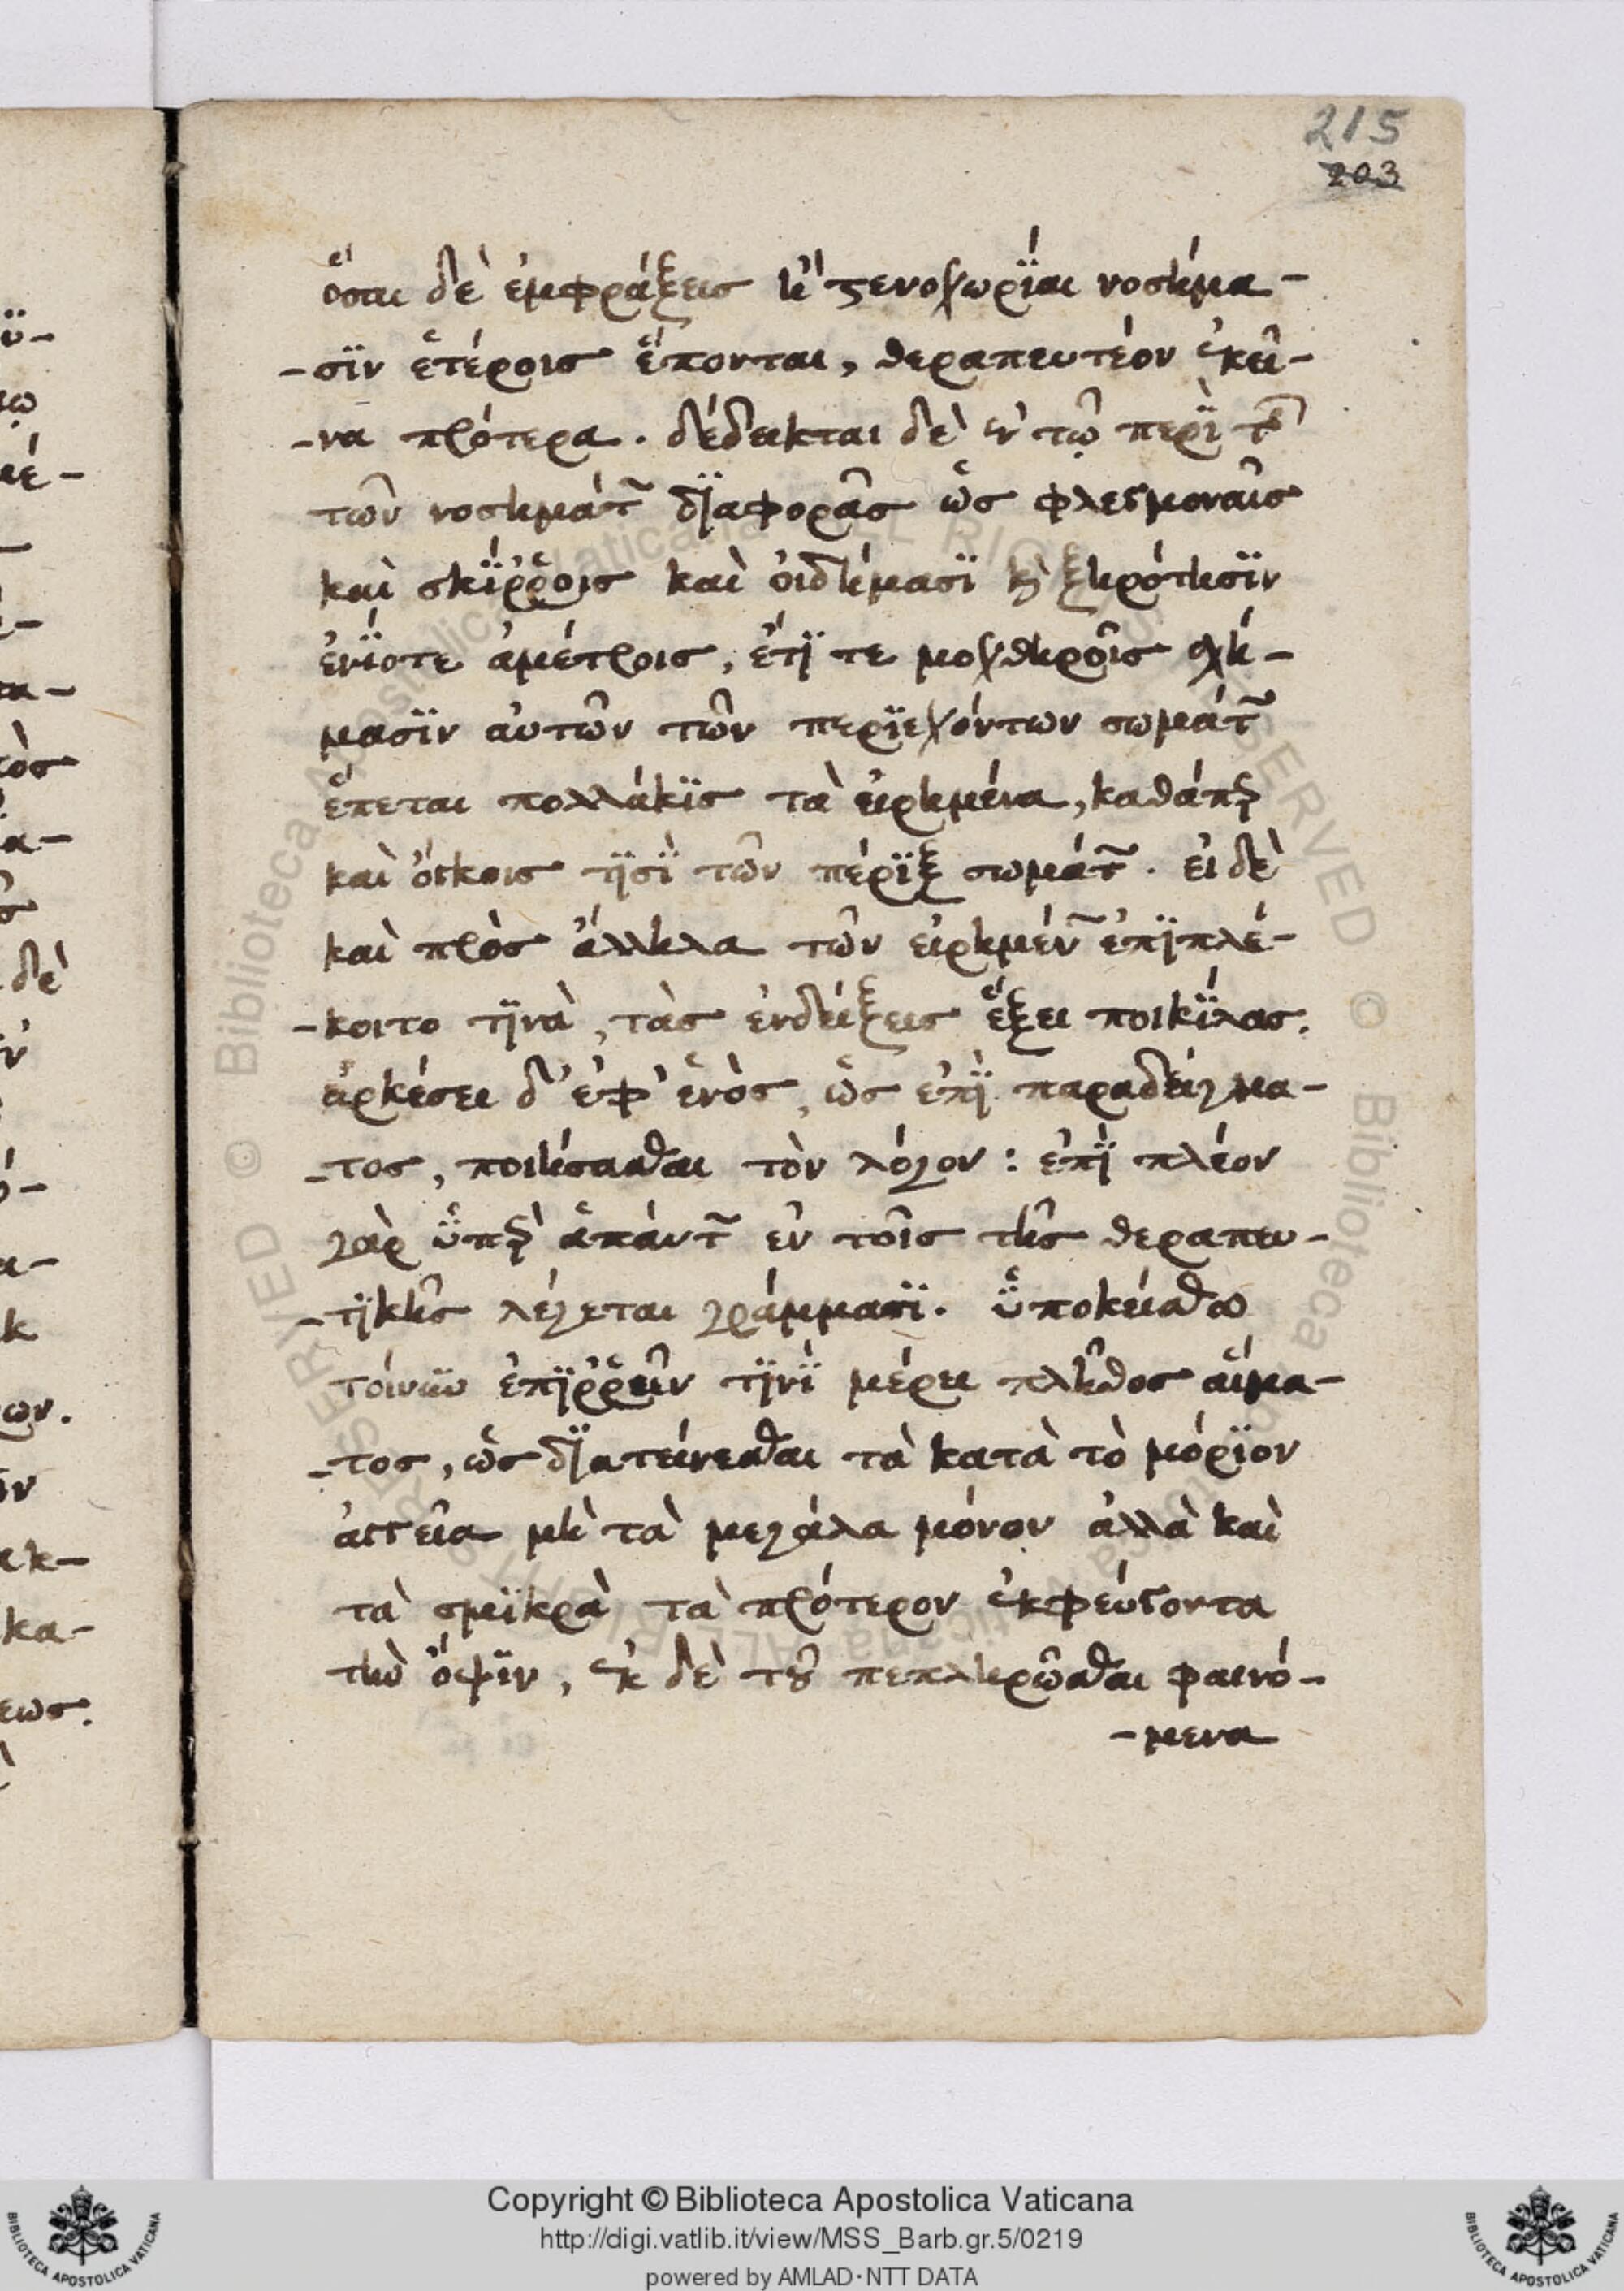 215
203
ὅσαι δὲ ἐμφράξεις ἢ στενοχωρΐαι νοσήμα-
-σϊν ἑτέροις ἕπονται, θεραπευτέον ἐκεῖ-
-να πρότερα. δέδεικται δὲ ἐν τῷ περὶ τῆς
τῶν νοσημάτων δϊαφορᾶς ὡς φλεγμοναῖς
καὶ σκΐῤῥοις καὶ οἰδήμασϊ καὶ ξηρότησϊν
ἐνΐοτε ἀμέτροις, ἔτϊ τε μοχθηροῖς σχή-
μασϊν αὐτῶν τῶν περϊεχόντων σωμάτων
ἕπεται πολλάκϊς τὰ εἰρημένα, καθάπερ
καὶ ὄγκοις τϊσὶ τῶν πέρϊξ σωμάτων. εἰ δὲ
καὶ πρὸς ἄλληλα τῶν εἰρημένων ἐπϊπλέ-
-κοιτο τϊνὰ, τὰς ἐνδείξεις ἕξει ποικΐλας.
ἀρκέσει δ' ἐφ' ἑνὸς, ὡς ἐπῒ παραδείγμα-
-τος, ποιήσασθαι τὸν λόγον: ἐπῒ πλέον
γὰρ ὑπὲρ ἁπάντων ἐν τοῖς τῆς θεραπευ-
-τϊκῆς λέγεται γράμμασϊ. ὑποκείσθω
τοίνυν ἐπϊῤῥεῖν τϊνῒ μέρει πλῆθος αἵμα-
-τος, ὡς δϊατείνεσθαι τὰ κατὰ τὸ μόρϊον
ἀγγεῖα μὴ τὰ μεγάλα μόνον ἀλλὰ καὶ
τὰ σμϊκρὰ τὰ πρότερον ἐκφεύγοντα
τὴν ὄψϊν, ἐκ δὲ τοῦ πεπληρῶσθαι φαινό-
-μενα
Copyright © Biblioteca Apostolica Vaticana
http://digi.vatlib.it/view/MSS_Barb.gr.5/0219
powered by AMLAD·NTT DATA